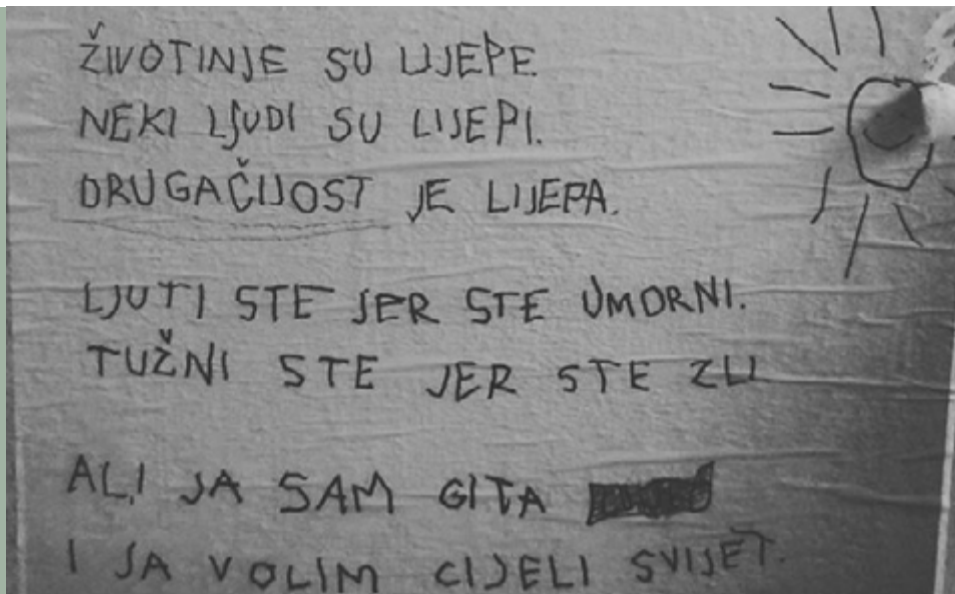 ŽIVOTINJE SU LIJEPE.
NEKI LJUDI SU LIJEPI.
DRUGAČIJOST JE LIJEPA.
LJUTI STE JER STE UMORNI.
TUŽNI STE JER STE ZLI
ALI JA SAM GITA
I JA VOLIM CIJELI SVIJET.